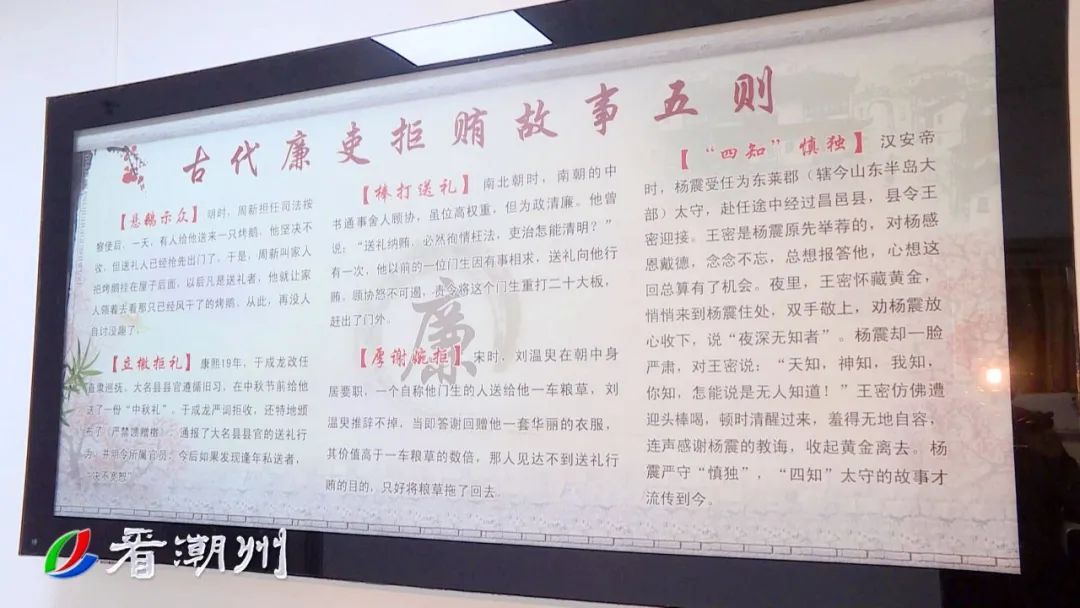 古代廉吏拒贿故事五则
【悬鹅示众】 明时，周新担任司法按
察使后，一天，有人给他送来一只烤鹅，他坚决不
收，但送礼人已经抢先出门了。于是，周新叫家人
把烤鹅挂在屋子后面，以后凡是送礼者，他就让家
人领着去看那只已经风干了的烤鹅。从此，再没人
自讨没趣了。
【立檄拒礼】 康熙19年，于成龙改任
直隶巡抚。大名县县官遵循旧习，在中秋节前给他
送了一份“中秋礼”。于成龙严词拒收，还特地颁
布了《严禁馈赠檄》，通报了大名县县官的送礼行
为，并明令所属官员：今后如果发现逢年私送者，
“决不宽恕”
【棒打送礼】 南北朝时，南朝的中
书通事舍人顾协，虽位高权重，但为政清廉。他曾
说：“送礼纳贿，必然徇情枉法，吏治怎能清明？”
有一次，他以前的一位门生因有事相求，送礼向他行
贿，顾协怒不可遏，责令将这个门生重打二十大板，
赶出了门外。
廉
【厚谢婉拒】 宋时，刘温臾在朝中身
居要职，一个自称他门生的人送给他一车粮草，刘
温臾推辞不掉，当即答谢回赠他一套华丽的衣服，
其价值高于一车粮草的数倍，那人见达不到送礼行
贿的目的，只好将粮草拖了回去。
【“四知”慎独】 汉安帝
时，杨震受任为东莱郡（辖今山东半岛大
部）太守，赴任途中经过昌邑县，县令王
密迎接。王密是杨震原先举荐的，对杨感
恩戴德，念念不忘，总想报答他，心想这
回总算有了机会。夜里，王密怀藏黄金，
悄悄来到杨震住处，双手敬上，劝杨震放
心收下，说“夜深无知者”。杨震却一脸
严肃，对王密说：“天知，神知，我知，
你知，怎能说是无人知道！”王密仿佛遭
迎头棒喝，顿时清醒过来，羞得无地自容，
连声感谢杨震的教诲，收起黄金离去。杨
震严守“慎独”，“四知”太守的故事才
流传到今。
看潮州